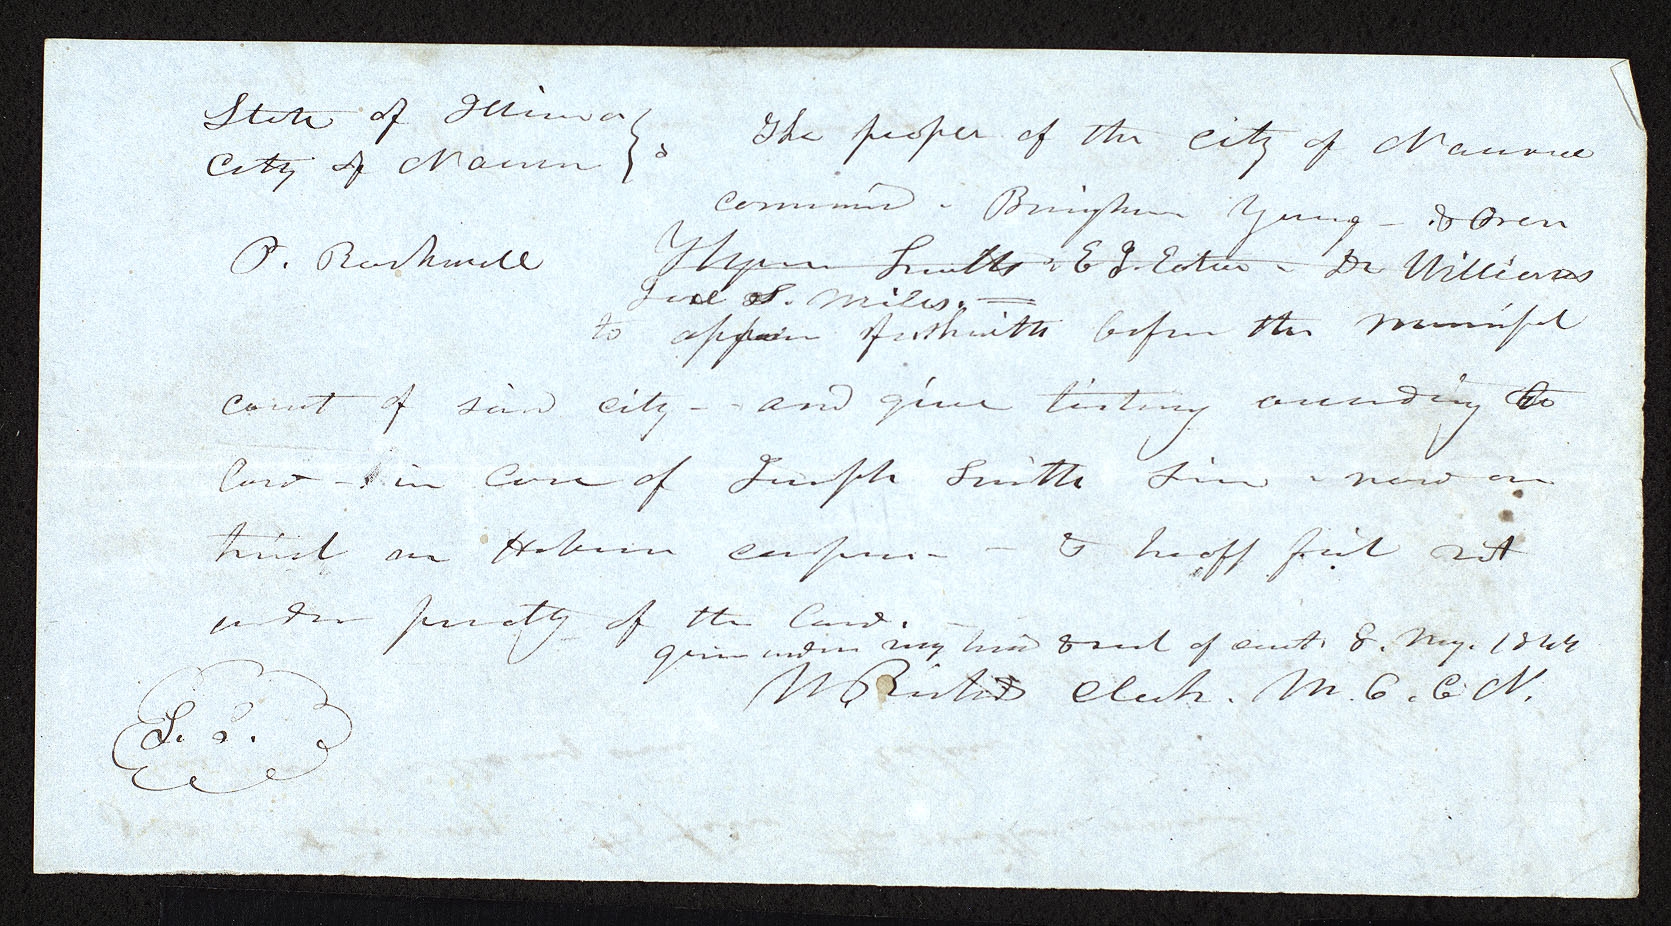 State of Illinois } The people of the City of Nauvoo
City of Nauvoo } s
command - Brigham Young - & Oren
P. Rockwell Hyrum Smith - E J. - Dr Williams
Joel S. Miles. =
to appear forthwith before the municipal
court of said city - and give testimony according to
Law - in case of Joseph Smith Sen - now on
trial on Habeus corpus - - & hereof fail not
under penalty of the Law. -
given under my hand & seal of court. 8. May. 1844
W Richards Clerk. M. C. C N.
L. S.